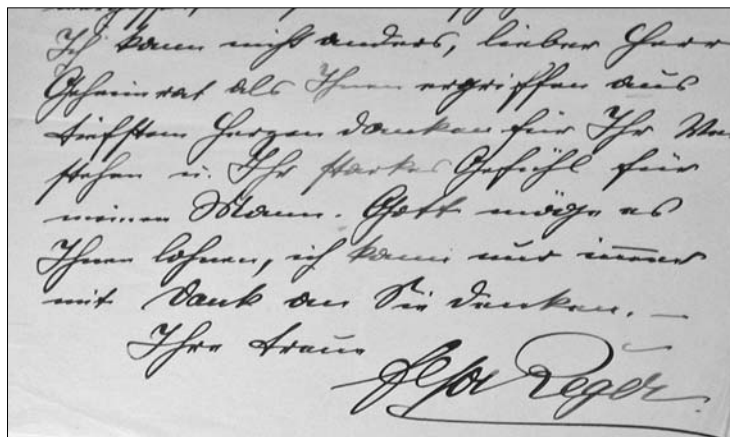 Ich kann nicht anders, lieber Herr
Geheimrat als Ihnen ergriffen aus
tiefstem Herzen danken für Ihr Ver
stehen u. Ihr starkes Gefühl für
meinen Mann. Gott möge es
Ihnen lohnen, ich kann nur immer
mit Dank an Sie denken. —
Ihre treue
Elsa Reger.